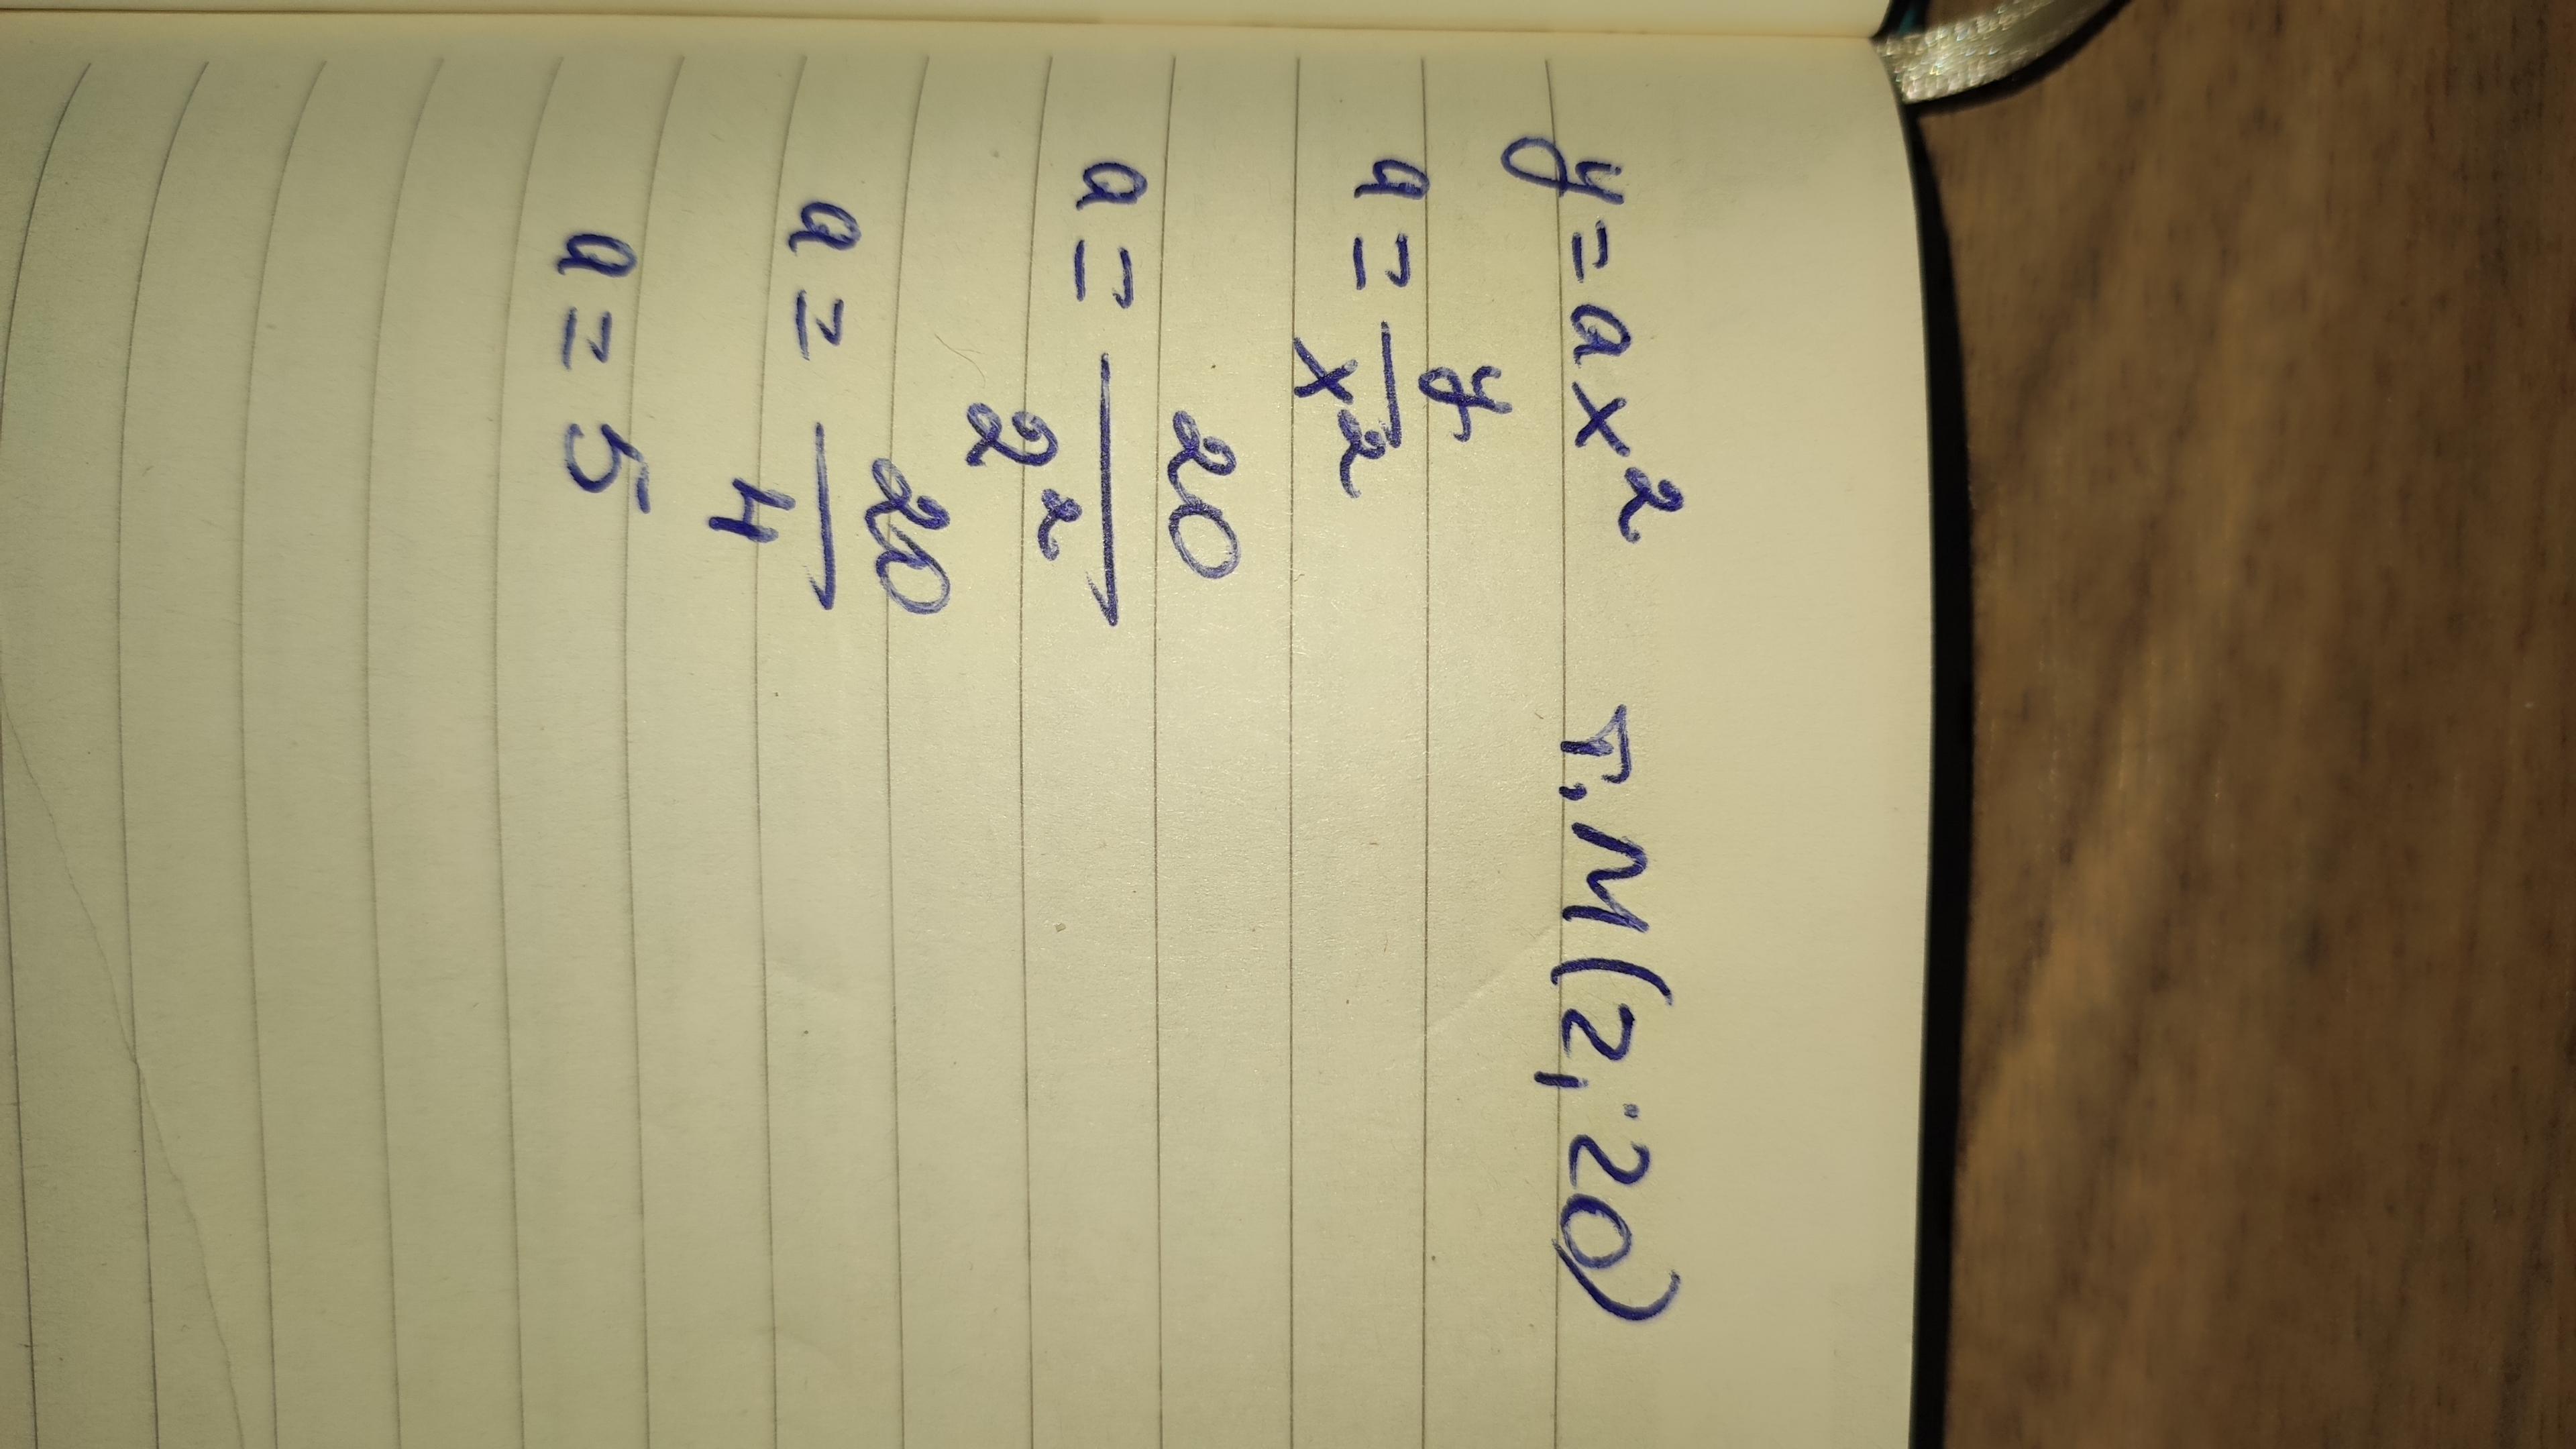 y = ax² т. М (2, 20)
a = y/x²
a = 20/2²
a = 20/4
a = 5